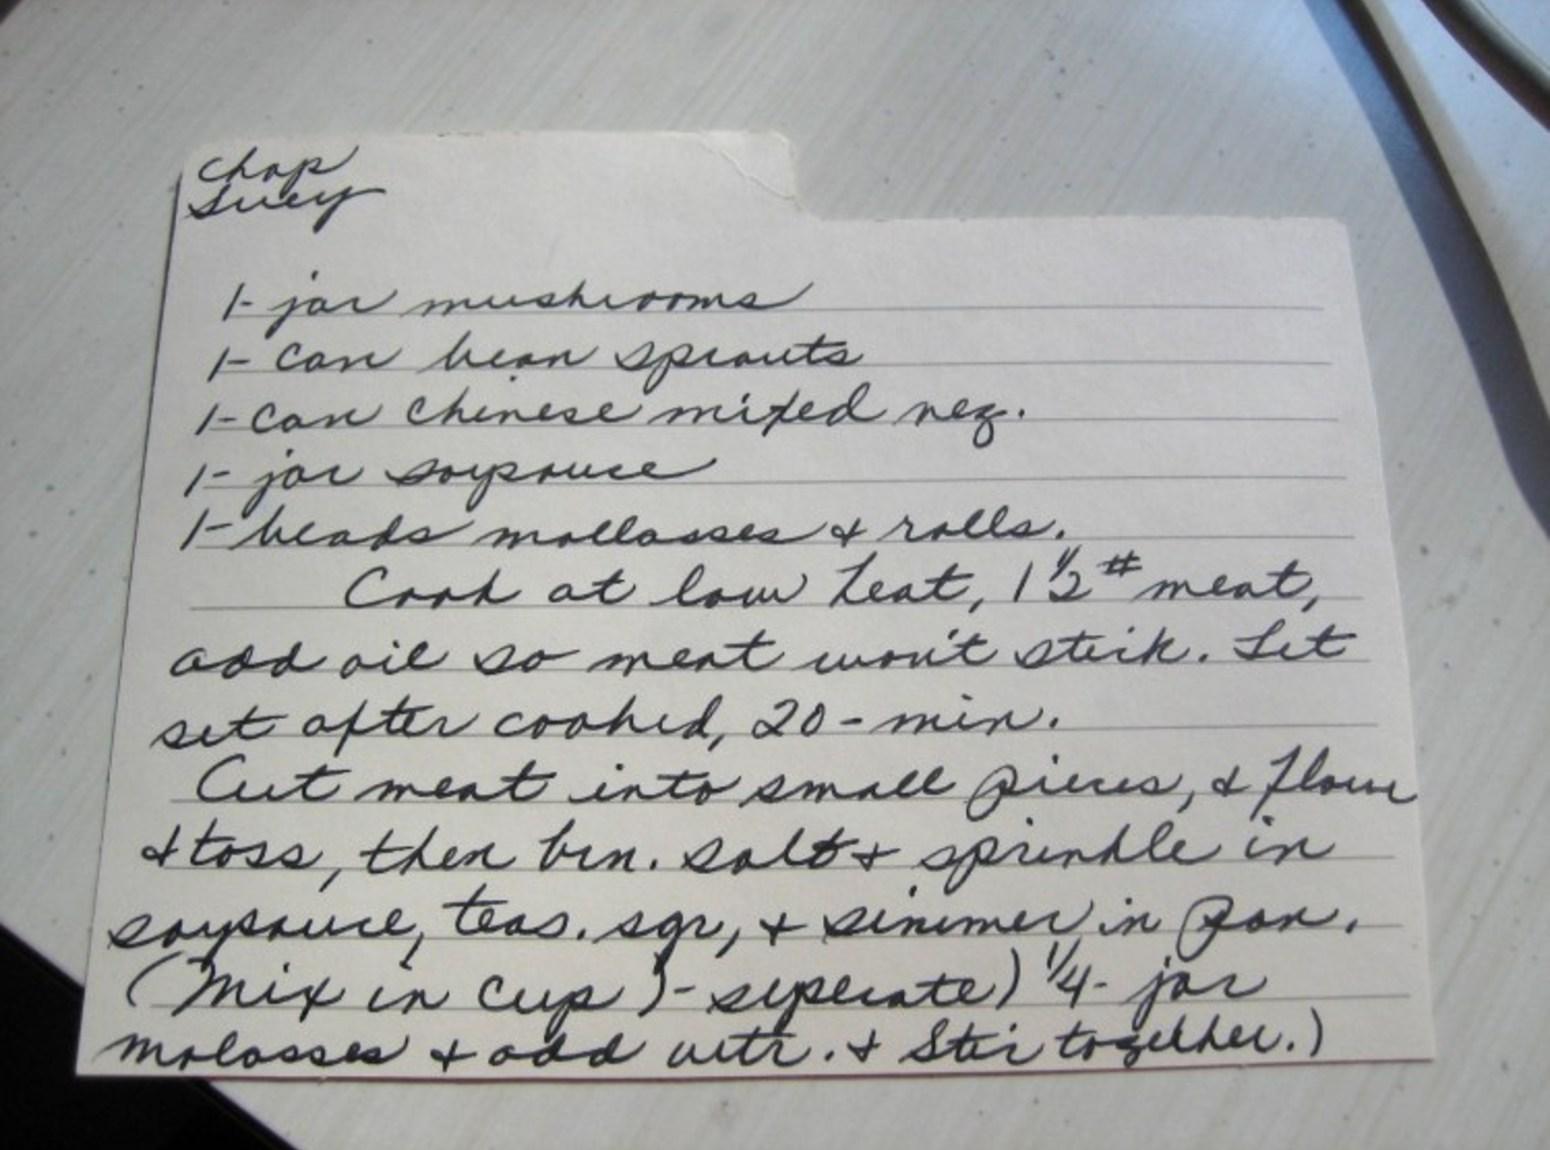 Chop
Suey
1- jar mushrooms
1- can bean sprouts
1- can Chinese mixed veg.
1- jar soysauce
1- beads mollasses & rolls.
Cook at low heat, 1 1/2 # meat,
add oil so meat won't stick. Let
set after cooked, 20-min.
Cut meat into small pieces, & flour
& toss, then brn. salt & sprinkle in
soysauce, teas. sgr, & simmer in pan.
(Mix in cup)- seperate) 1/4- jar
molasses & add wtr. & Stir together.)